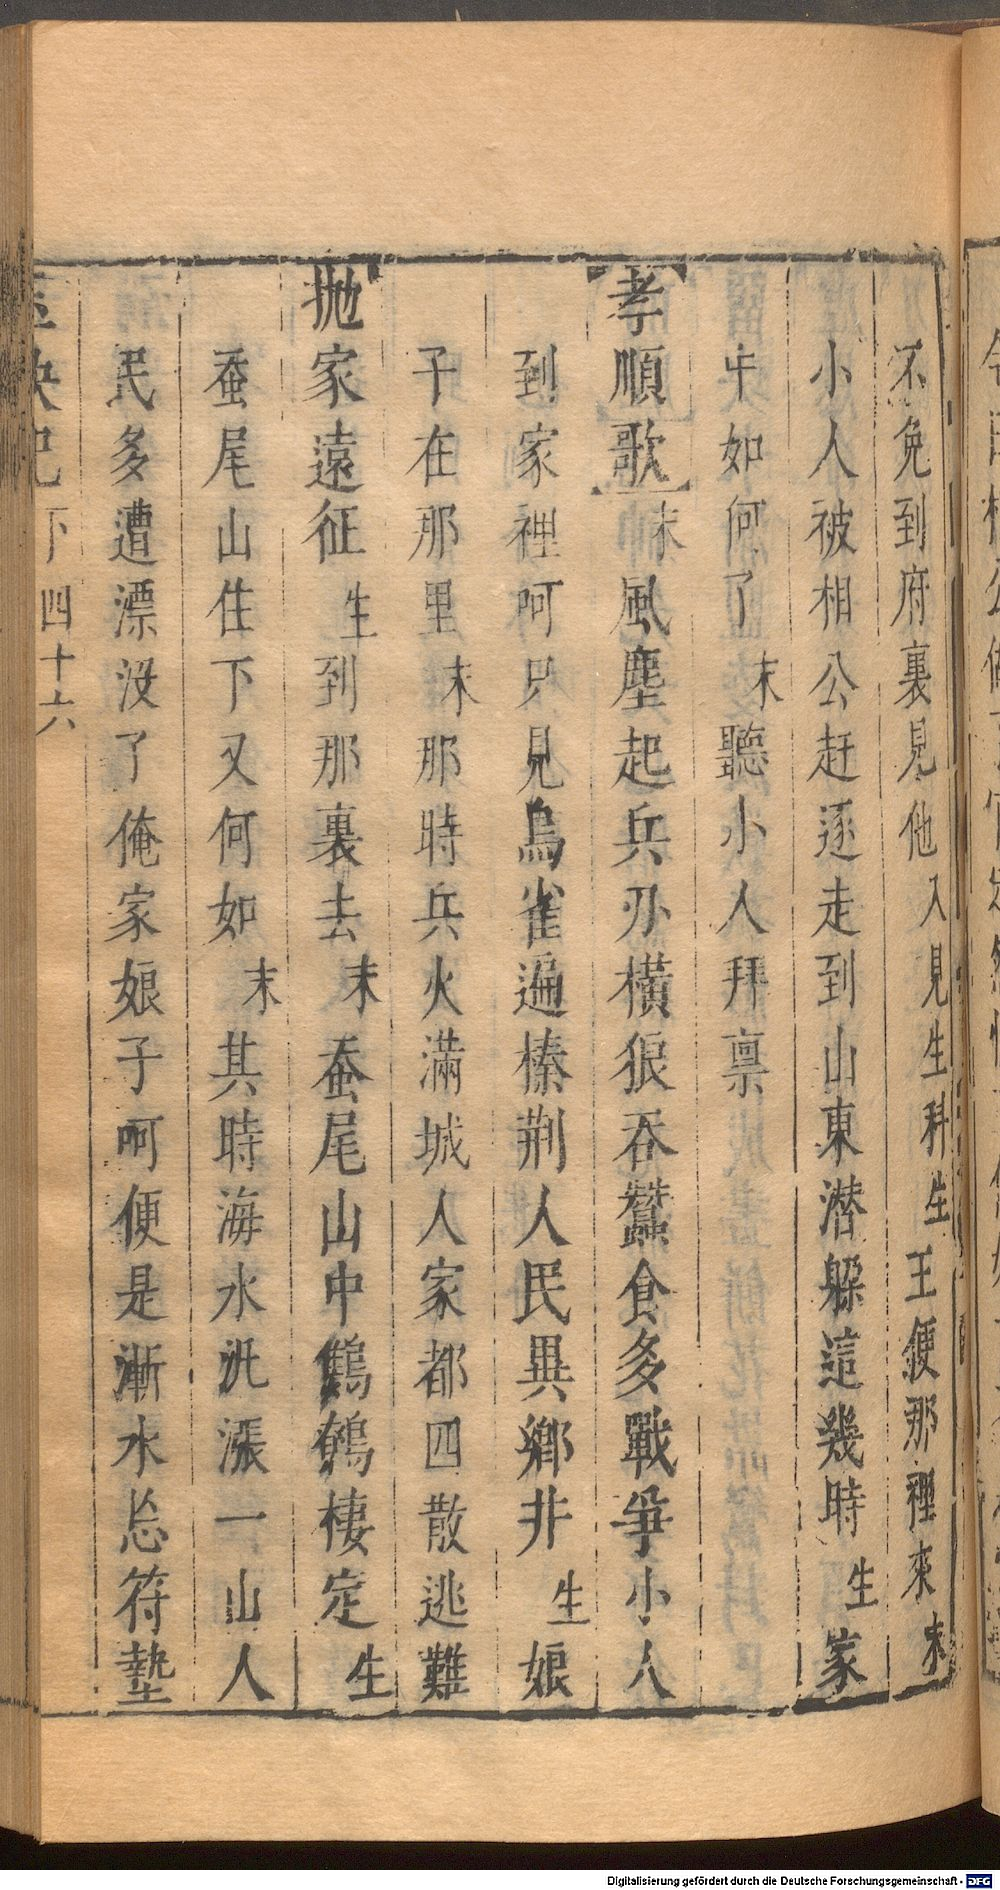 不免到府裏見他入見生科生王便那裡來末
小人被相公赶逐走到山東潜躱這幾時生家
中如何了末聽小人拜禀
孝順歌末風塵起兵刃橫狠吞蠶食多戰爭小人
到家裡呵只見烏雀遍榛荆人民異鄉井生娘
子在那里末那時兵火滿城人家都四散逃難
拋家遠征生到那裏去末蚕尾山中鶴鵒棲定生
蚕尾山住下又何如末其時海水汎漲一山人
民多遭漂沒了俺家娘子呵便是漸水忘符墊
下 四十六
Digitalisierung gefördert durch die Deutsche Forschungsgemeinschaft - DFG